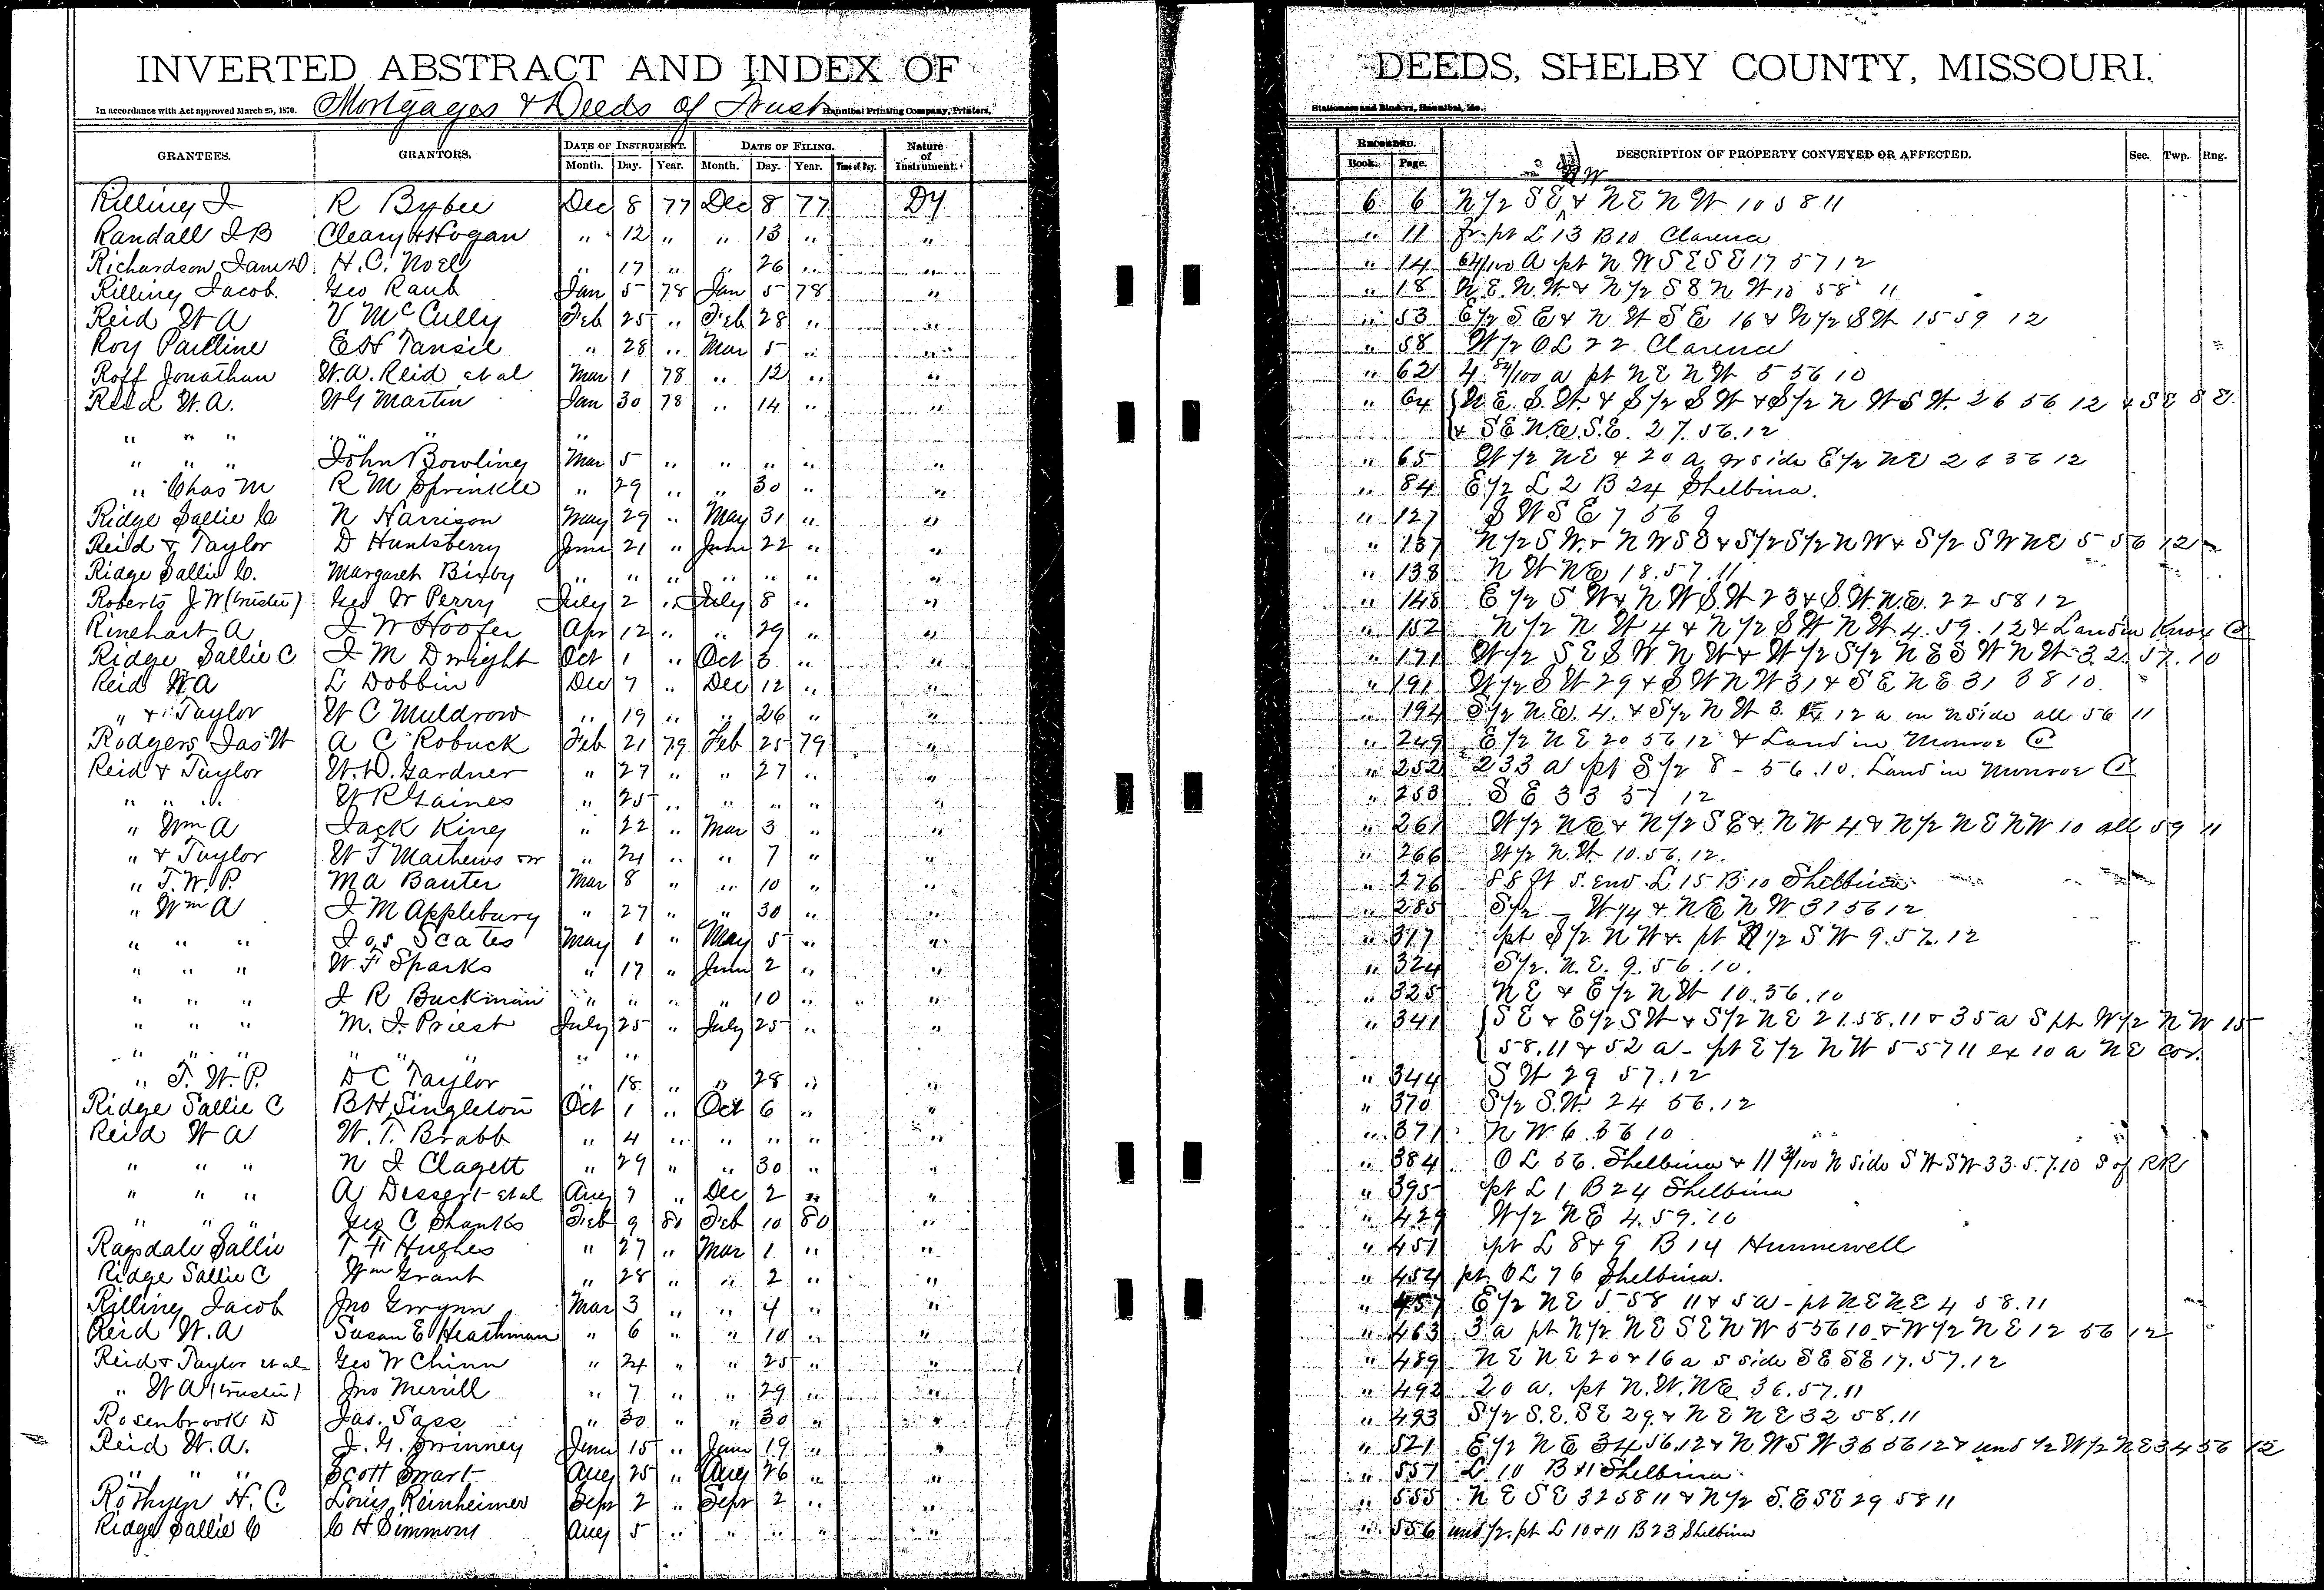 INVERTED ABSTRACT AND INDEX OF DEEDS, SHELBY COUNTY, MISSOURI.
In accordance with Act approved March 25, 1870. Mortgages & Deeds of Trust Hannibal Printing Company, Printers, Stationers and Binders, Hannibal, Mo.
GRANTEES. GRANTORS. DATE OF INSTRUMENT. DATE OF FILING. Nature of Instrument. RECORDED. DESCRIPTION OF PROPERTY CONVEYED OR AFFECTED. Sec. Twp. Rng.
Month. Day. Year. Month. Day. Year. Time of Day. Book. Page.
NW
Rilling J R Bybee Dec 8 77 Dec 8 77 DY 6 6 N 1/2 SE & NE NW 10 58 11
Randall J B Cleary & Hogan " 12 " " 13 " " " 11 Fr pt L 13 B 10 Clarence
Richardson Jane D H. C. Noel " 17 " " 26 " " " 14 64/100 A pt N W S E S E 17 57 12
Rilling Jacob. Geo Raub Jan 5 78 Jan 5 78 " " 18 N. E. N. W. & N 1/2 S E N W 10 58 11
Reid W A V McCully Feb 25 " Feb 28 " " " 53 E 1/2 S E & N W S E 16 & N 1/2 S W 15 59 12
Roy Paulline E H Tansil " 28 " Mar 5 " " " 58 W 1/2 O L 22 Clarence
Roff Jonathan W. A. Reid et al Mar 1 78 " 12 " " " 62 4 54/100 a pt N E N W 5 56 10
Reid W. A. W G Martin Jan 30 78 " 14 " " " 64 N. E. S. W. & S 1/2 S W & S 1/2 N. W S W. 26 56 12 & S E S E
" " " " " " " & S E N. E. S. E. 27. 56. 12
" " " John Bowling Mar 5 " " " " " " 65 W 1/2 NE & 20 a side E 1/2 NE 26 56 12
" Chas M R M Sprinkle " 29 " " 30 " " " 84 E 1/2 L 2 B 24 Shelbina.
Ridge Sallie C N Harrison May 29 " May 31 " " " 127 S W S E 7 56 9
Reid & Taylor D Huntsberry June 21 " June 22 " " " 137 N 1/2 S W. & N W S E & S 1/2 S 1/2 N W & S 1/2 S W N E 5 56 12
Ridge Sallie C. Margaret Bixby " " " " " " " " 138 N W NE 18. 57. 11
Roberts J W (trustee) Geo W Perry July 2 " July 8 " " " 148 E 1/2 S W & N W S. W 23 & S. W. N. E. 22 58 12
Rinehart A J W Hoofer Apr 12 " " 29 " " " 152 N 1/2 N W 4 & N 1/2 S W N W 4. 59. 12 & Land in Knox Co
Ridge Sallie C J M Dwight Oct 1 " Oct 3 " " " 171 W 1/2 S E S W N W & W 1/2 S 1/2 N E S W N W 32. 57. 10
Reid W A L Dobbin Dec 7 " Dec 12 " " " 191 W 1/2 S W 29 & S W N W 31 & S E N E 31 58 10
" & Taylor W C Muldrow " 19 " " 26 " " " 194 S 1/2 N. E. 4. & S 1/2 N W 3. Ex 12 a on N side all 56 11
Rodgers Jas W A C Robuck Feb 21 79 Feb 25 79 " " 249 E 1/2 N E 20 56 12 & Land in Monroe Co
Reid & Taylor W. D. Gardner " 27 " " 27 " " " 252 233 a pt S 1/2 8 - 56. 10. Land in Monroe Co
" " " W R Gaines " 25 " " " " " " 253 S E 33 57 12
" Wm A Jack King " 22 " Mar 3 " " " 261 W 1/2 NE & N 1/2 SE & N W 4 & N 1/2 N E N W 10 all 59 11
" & Taylor W T Mathews " 24 " " 7 " " " 266 W 1/2 N. W. 10. 56. 12.
" T. W. P. M A Banter Mar 8 " " 10 " " " 276 88 ft S. end L 15 B 10 Shelbina
" Wm A J M Applebury " 27 " " 30 " " " 285 S 1/2 W 1/4 & NE N W 31 56 12
" " " Jos Scates May 1 " May 5 " " " 317 pt S 1/2 N W & pt N 1/2 S W 9. 57. 12
" " " W F Sparks " 17 " June 2 " " " 324 S 1/2. N. E. 9. 56. 10.
" " " J R Buckman " " " " 10 " " " 325 N E & E 1/2 N W 10. 56. 10
" " " M. J. Priest July 25 " July 25 " " " 341 S E & E 1/2 S W & S 1/2 N E 21. 58. 11 & 35 a S pt W 1/2 N W 15
" " " " " " " " 58. 11 & 52 a - pt E 1/2 N W 5 57 11 ex 10 a N E cor.
" T. W. P. D C Taylor " 18 " " 28 " " " 344 S W 29 57. 12
Ridge Sallie C B H Singleton Oct 1 " Oct 6 " " " 370 S 1/2 S. W. 24 56. 12
Reid W A W. T. Brabb " 4 " " " " " " 371 N W 6. 56 10
" " " N J Clagett " 29 " " 30 " " " 384 O L 56. Shelbina & 11 N side S W S W 33. 57. 10 S of RR
" " " A Dessert et al Aug 7 " Dec 2 " " " 395 pt L 1 B 24 Shelbina
" " " Geo C Shanks Feb 9 80 Feb 10 80 " " 429 W 1/2 N E 4. 59. 10
Ragsdale Sallie T F Hughes " 27 " Mar 1 " " " 451 pt L 8 & 9 B 14 Hunnewell
Ridge Sallie C Wm Grant " 28 " " 2 " " " 454 pt. O L 76 Shelbina.
Rilling Jacob Jno Gwynn Mar 3 " " 4 " " " 457 E 1/2 N E 5 - 58 11 & 5 a - pt N E N E 4 58. 11
Reid W. A Susan E Heathman " 6 " " 10 " " " 463 3 a pt N 1/2 N E S E N W 5 56 10 & W 1/2 N E 12 56 12
Reid & Taylor et al Geo W Chinn " 24 " " 25 " " " 489 N E N E 20 & 16 a S side S E S E 17. 57. 12
" W A (trustee) Jno Merrill " 7 " " 29 " " " 492 20 a. pt N. W. NE 36. 57. 11
Rosenbrook D Jas. Sass " 30 " " 30 " " " 493 S 1/2 S. E. S E 29 & N E N E 32 58. 11
Reid W. A. J. G. Swinney June 15 " June 19 " " " 521 E 1/2 N E 34 56. 12 & N W S W 36 56 12 & und 1/2 W 1/2 N E 34 56 12
" " " Scott Smart Aug 25 " Aug 26 " " " 551 L 10 B 41 Shelbina
Röthyer H. C Louis Reinheimer Sepr 2 " Sepr 2 " " " 555 N E S E 32 58 11 & N 1/2 S. E S E 29 58 11
Ridge Sallie C C H Simmons Aug 5 " " " " " " 556 und 1/2. pt L 10 & 11 B 23 Shelbina